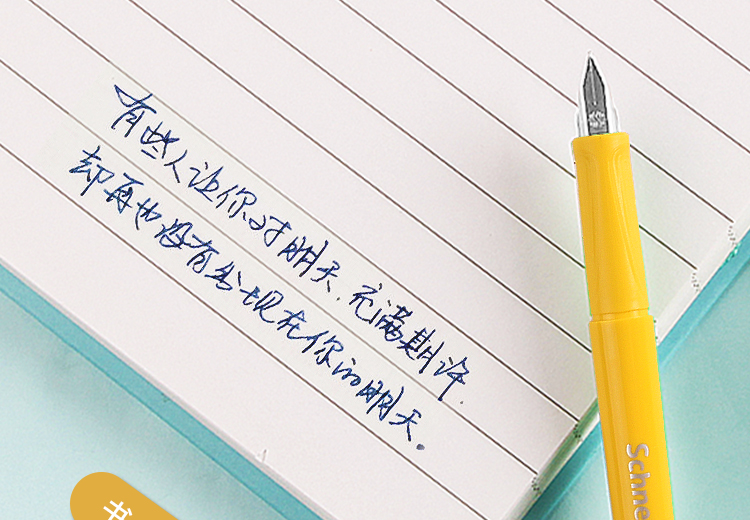 有些人让你对明天.充满期许.
却再也没有出现在你的明天.
Schne
书